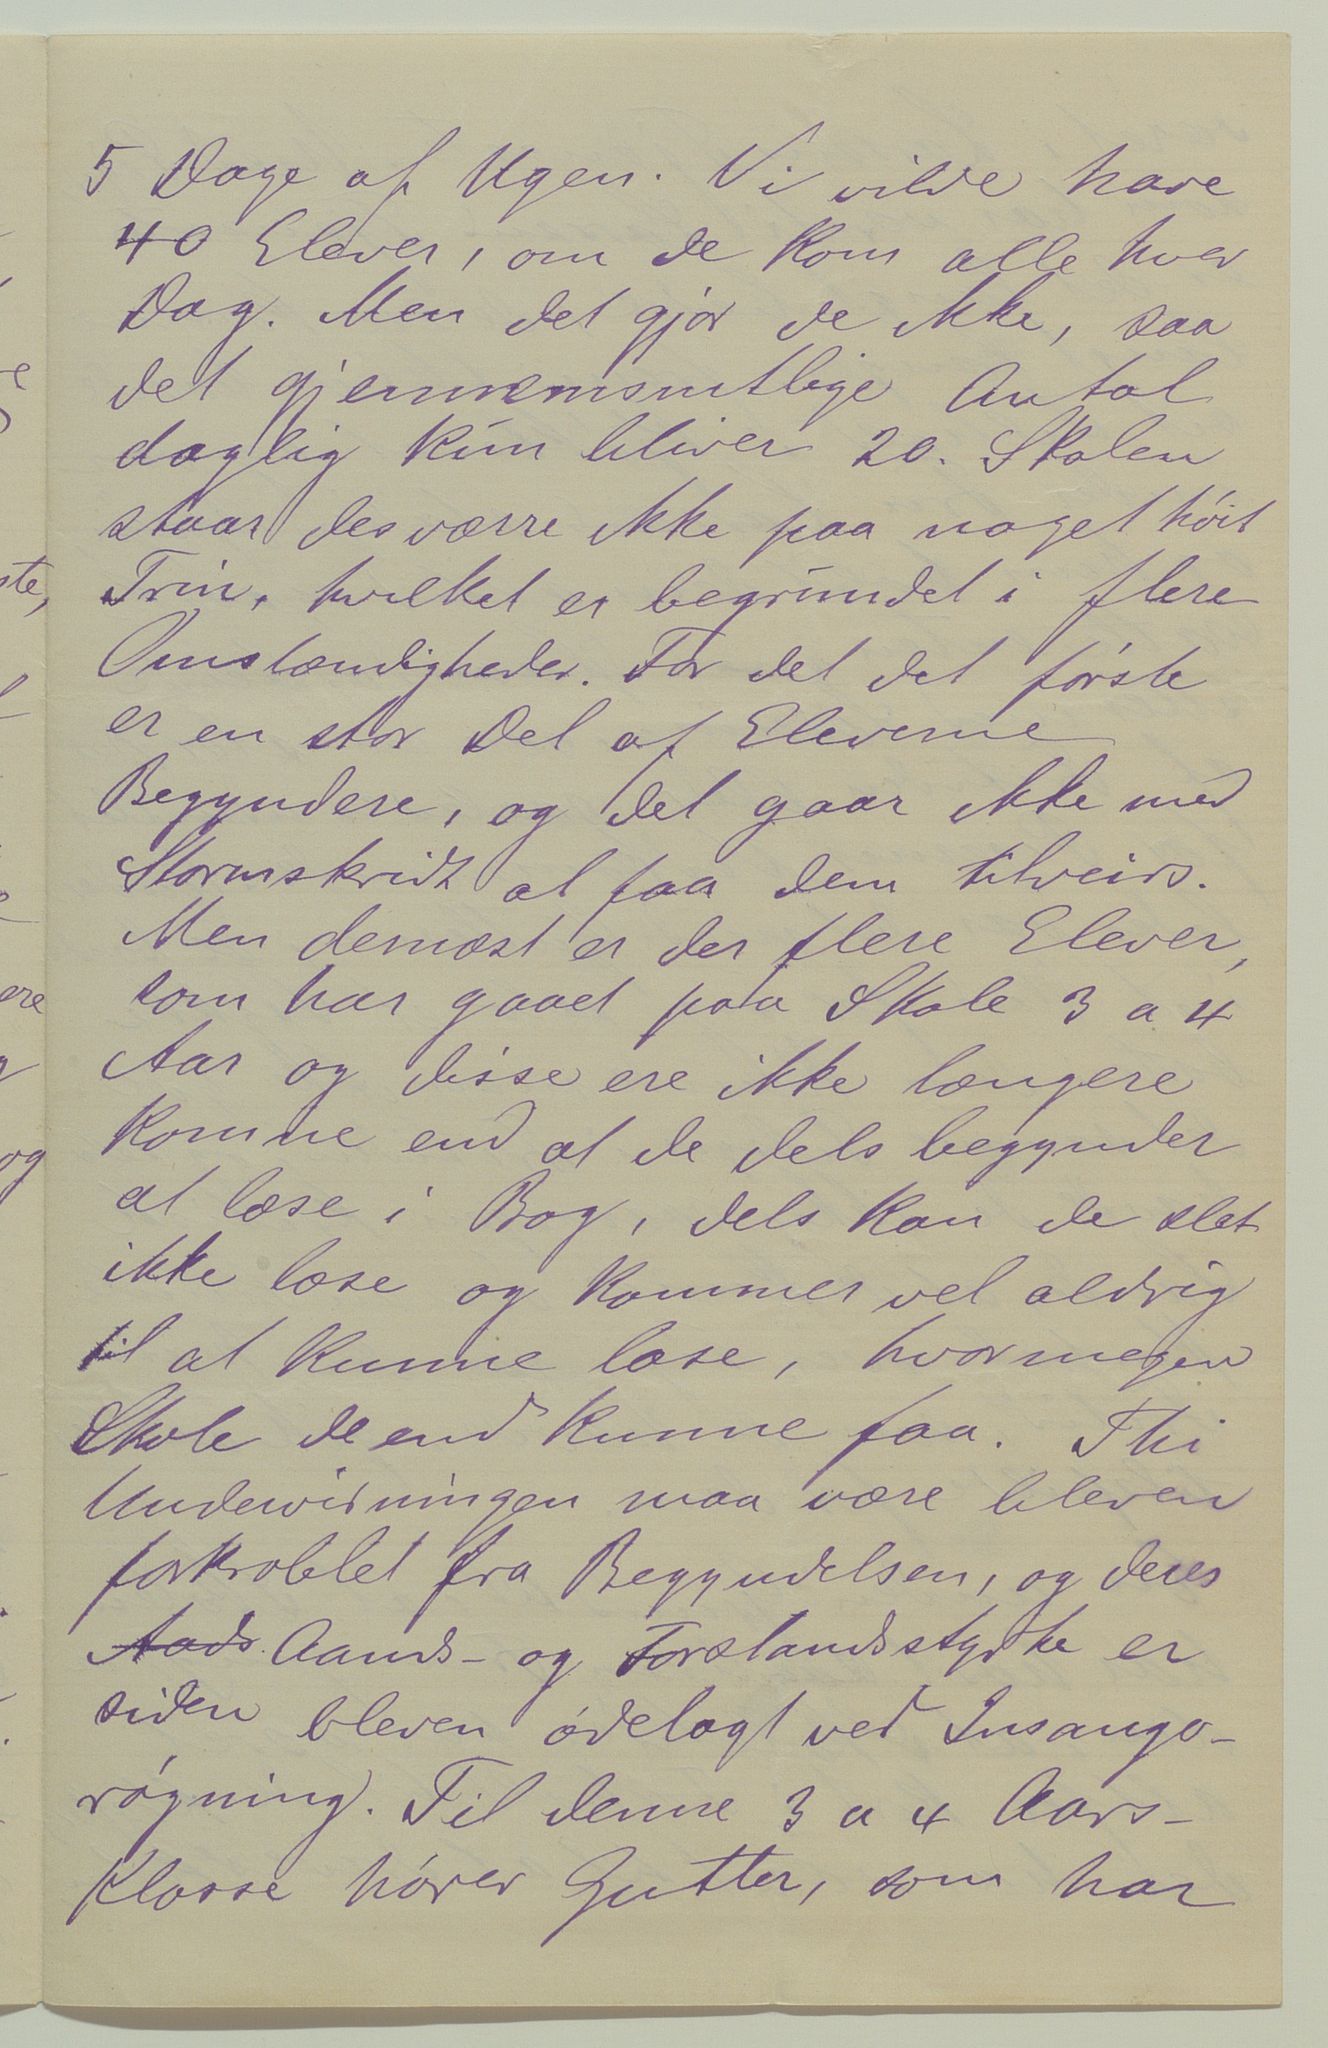 5 Dage af Ugen. Vi vilde have
40 Elever, om de kom alle hver
Dag. Men det gjør de ikke, saa
det gjennemsnitlige Antal
daglig kun bliver 20. Skolen
staar desværre ikke paa noget høit
Trin, hvilket er begrundet i flere
Omstændigheder. For det det første
er en stor Del af Eleverne
Begyndere, og det gaar ikke med
Stormskridt at faa dem tilveirs.
Men dernæst er der flere Elever,
som har gaaet paa Skole 3 a 4
Aar og disse ere ikke længere
komne end at de dels begynder
at læse i Bog, dels kan de slet
ikke læse og kommer vel aldrig
til at kunne læse, hvormegen
Skole de end kunne faa. Thi
Undervisningen maa være bleven
forkroblet fra Begyndelsen, og deres
Aads Aands- og Forstandsstyrke er
siden bleven ødelagt ved Insango-
røgning. Til denne 3 a 4 Aars-
Klasse hører Gutter, som har
ste,
ere
og